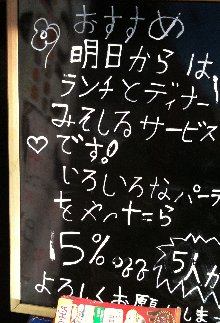 おすすめ
明日からは
ランチとディナー
みそしるサービス
♡です!
いろいろなパーテ
を
15%
5人か
よろしくお願いします